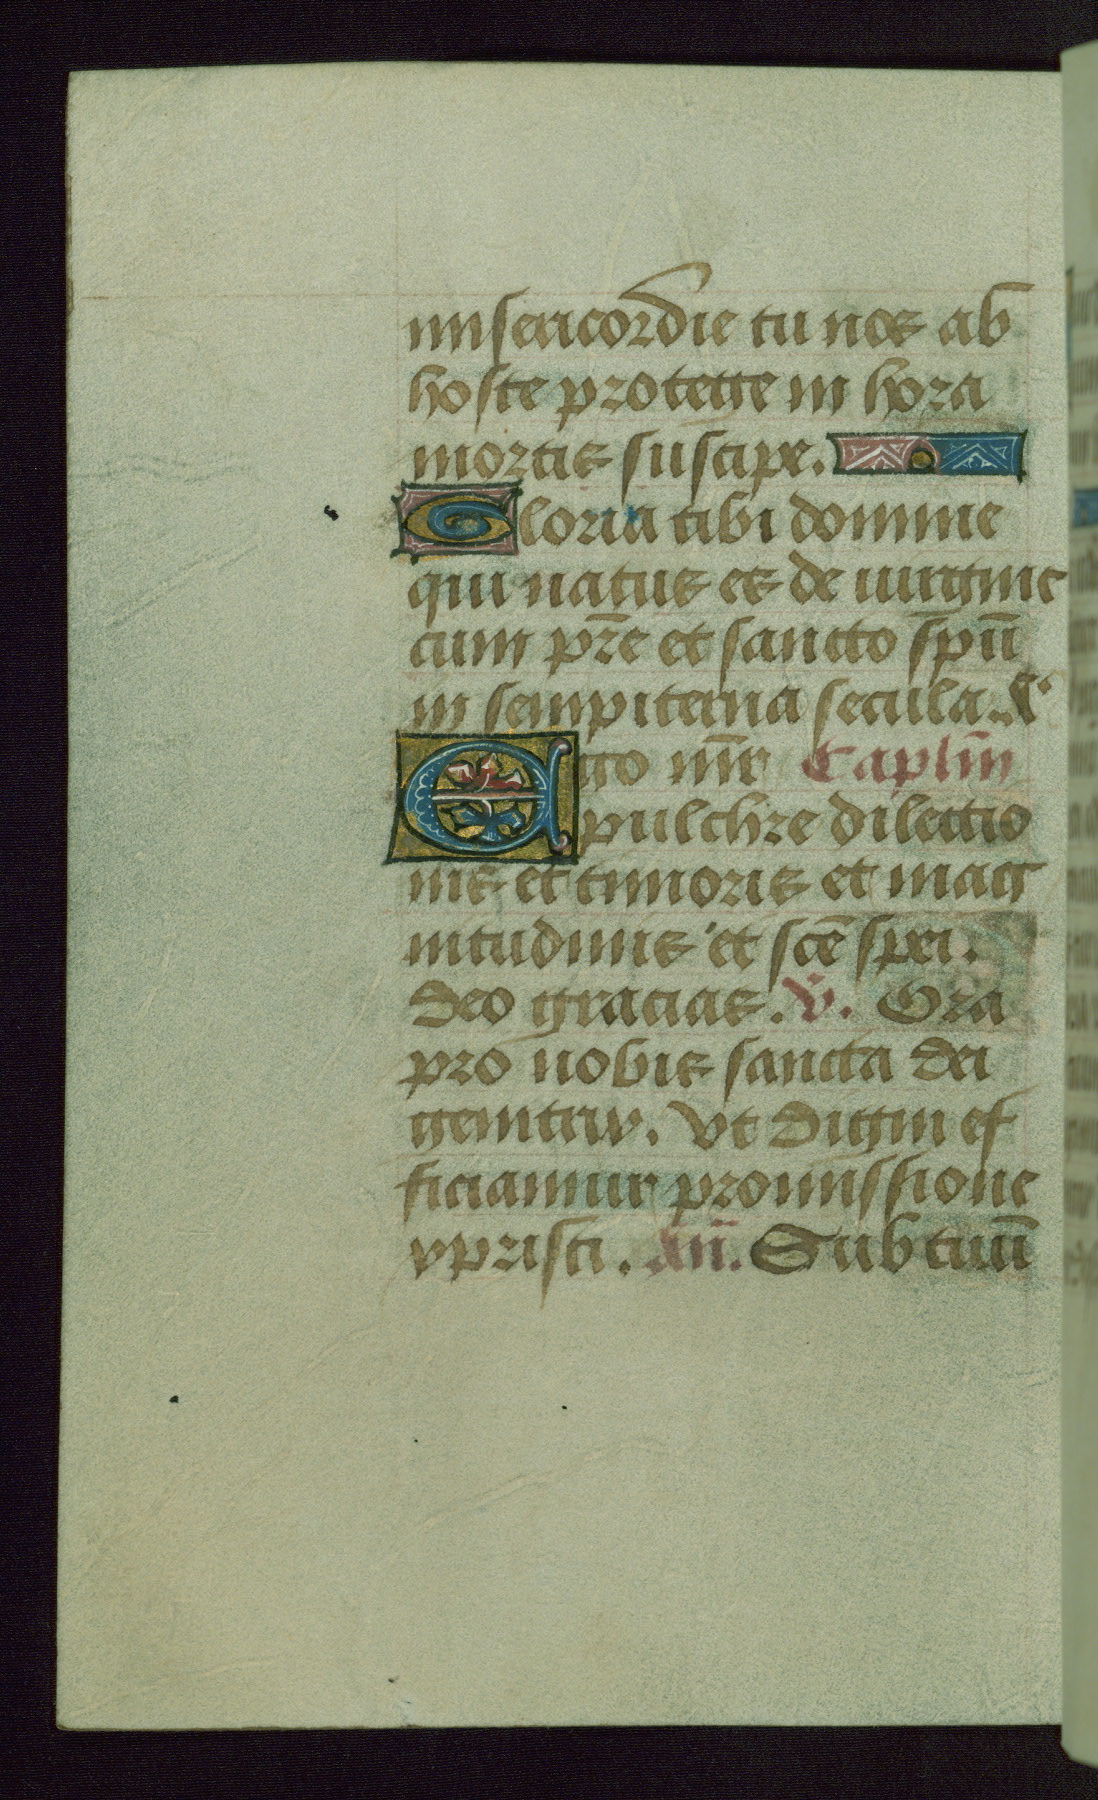 misericordie tu nos ab
hoste protege in hora
mortis suscipe.
Gloria tibi domine
qui natus es de uirgine
cum pr̄e et sancto spū
in sempiterna secula. a.
Ego mr̄ Caplm̄
pulchre dilectio
nis et timoris et mag
nitudinis et scē spei.
Deo gracias. v̄. Ora
pro nobis sancta dei
genitrix. Vt digni ef
ficiamur promissione
xpristi. An̄. Sub tuū